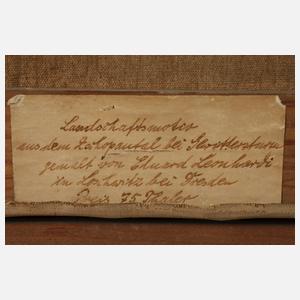 Landschaftsmotiv
aus dem Zschopautal bei
gemalt von Eduard Leonhardi
in Loschwitz bei Dresden
Preis 75 Thaler